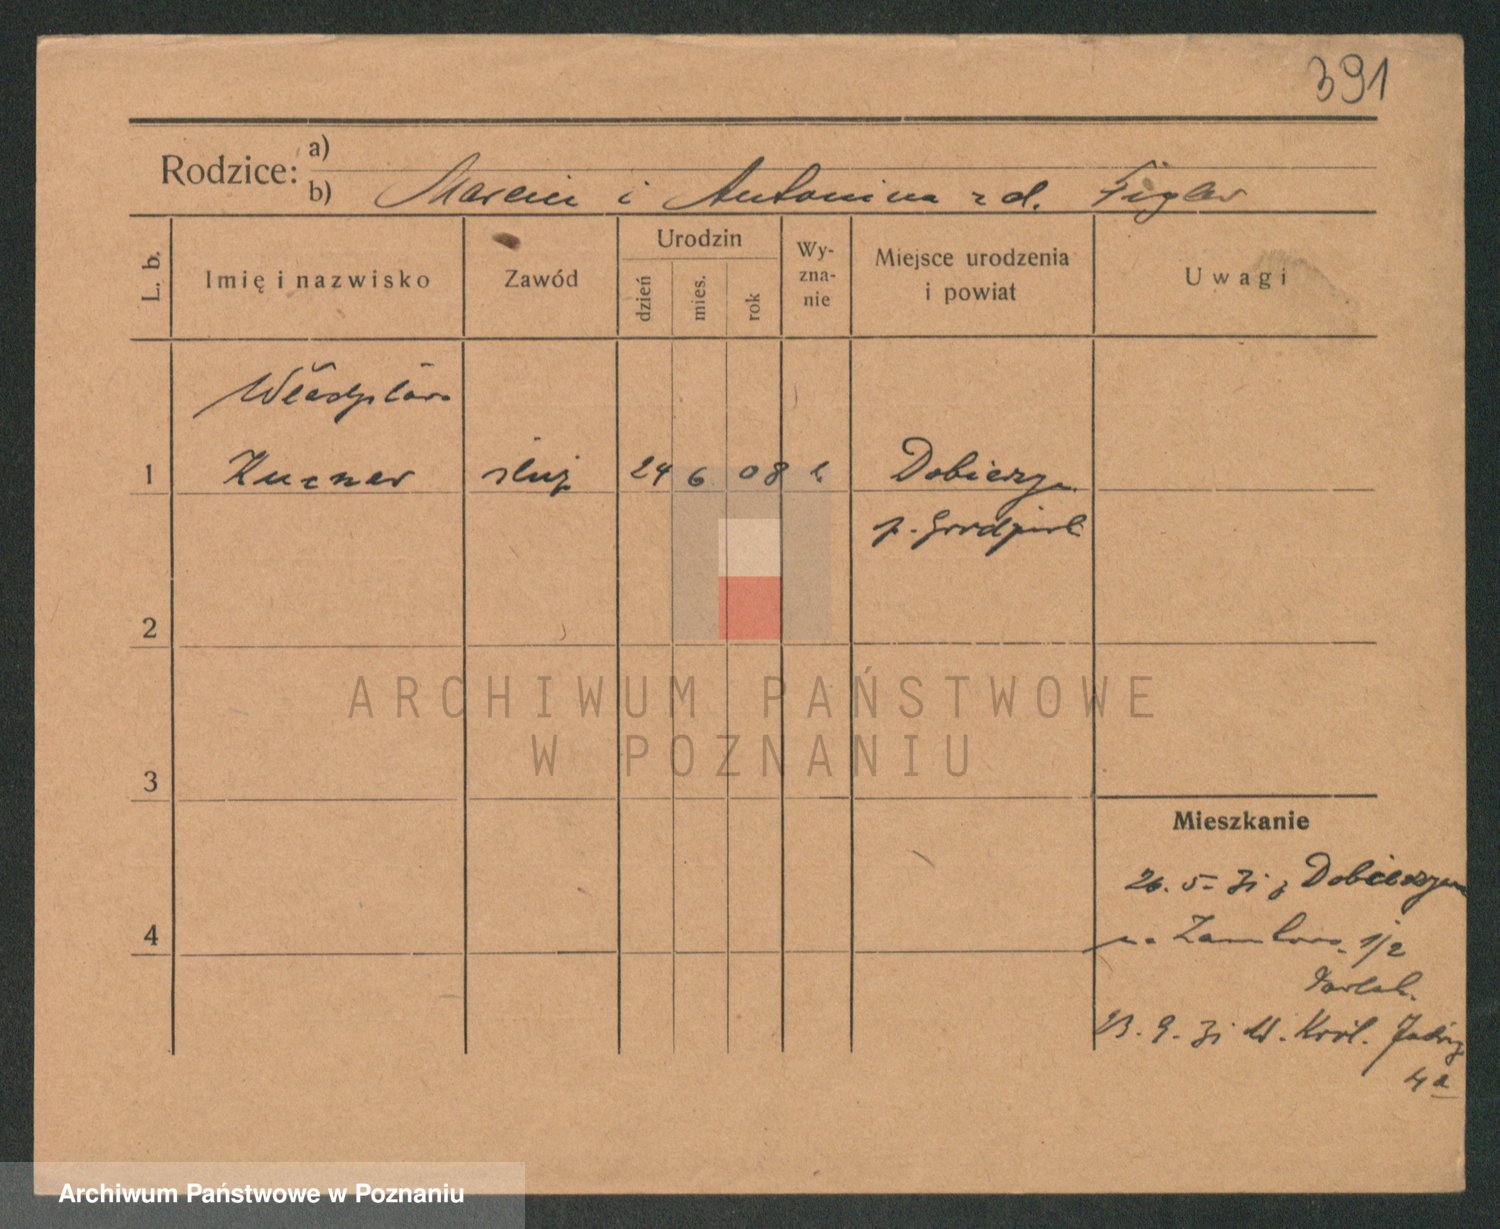 391
Rodzice: a)
b) Marcin i Antonina z d. Figler
L. b.
Imię i nazwisko
Zawód
Urodzin
dzień
mies.
rok
Wy-
zna-
nie
Miejsce urodzenia
i powiat
Uwagi
Władysława
1 Kucner służ 24 6 08 k Dobieżyn
p. Grodzisk
2
ARCHIWUM PAŃSTWOWE
W POZNANIU
3
Mieszkanie
26. 5. 31 z Dobieżyna
4
na 1/2
23. 9. 31 Król. Jadwigi
4a
Archiwum Państwowe w Poznaniu